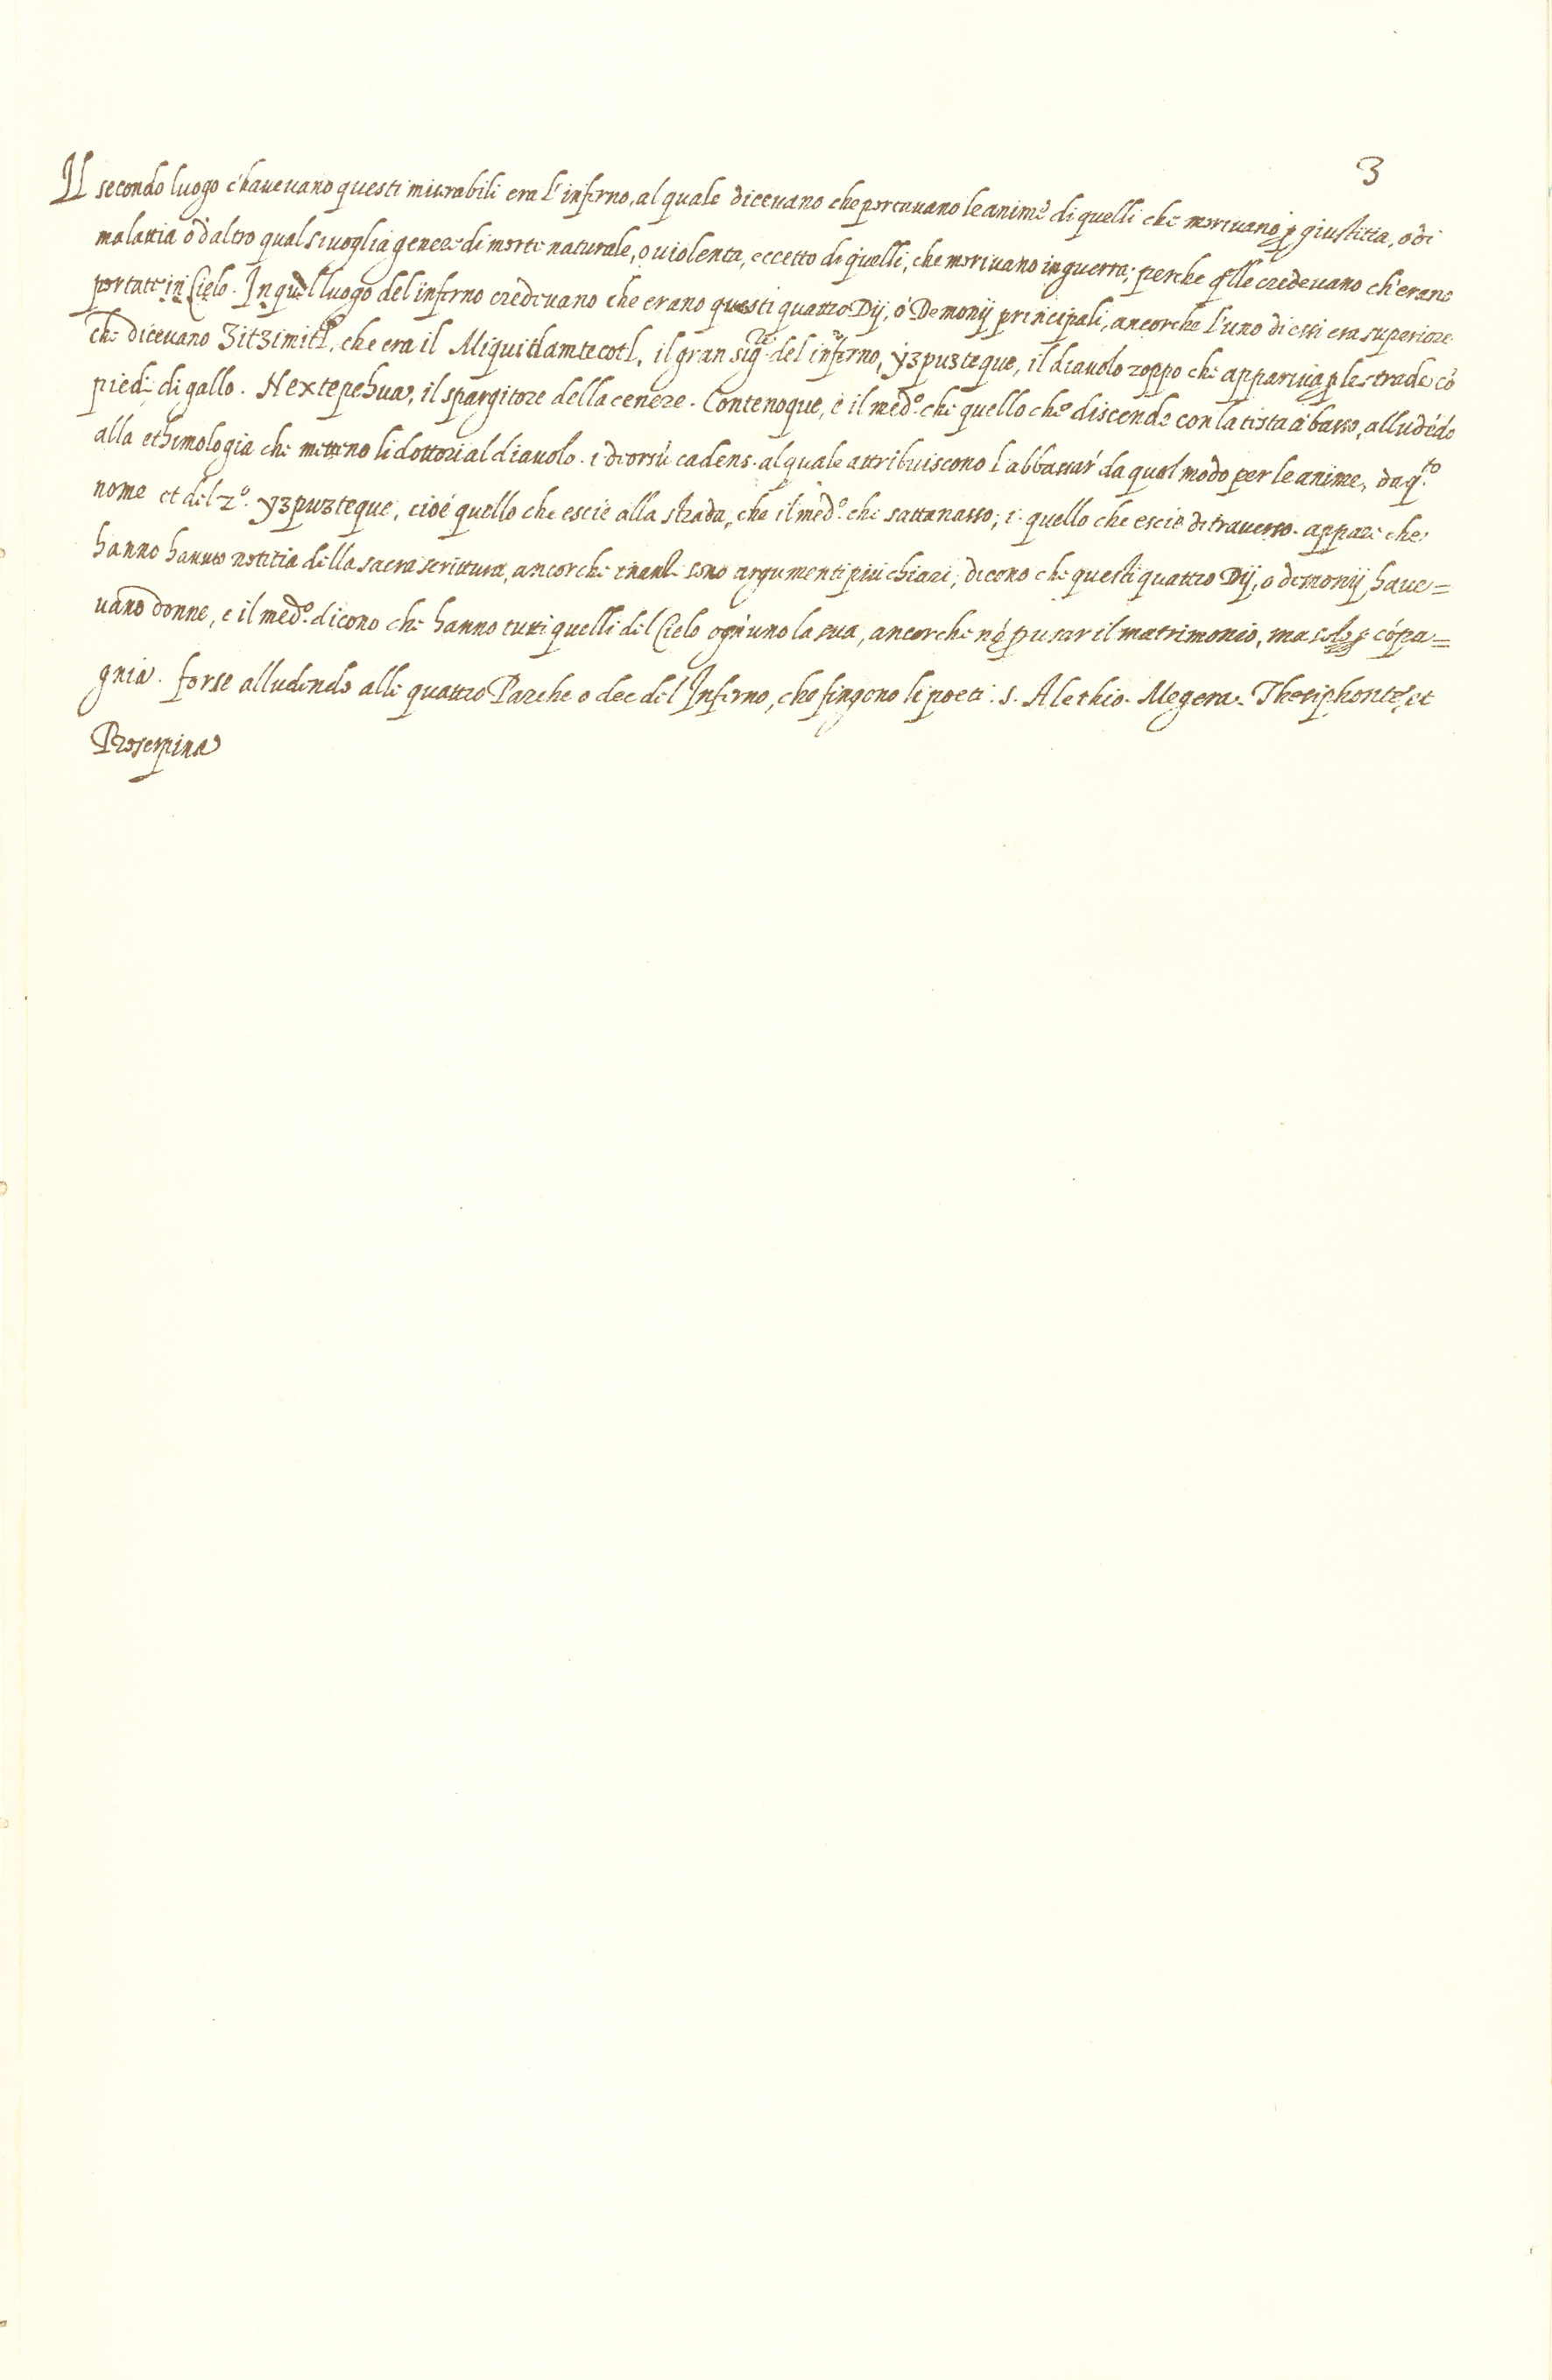 3
Il secondo luogo c'havevano questi miserabili era l'inferno, al quale dicevano che portavano le anime di quelli che morivano ꝑ giustitia, o di
malattia o d'altro qual si voglia genere di morte naturale, o violenta, eccetto di quelli, che morivano in guerra; perche q̃lle credevano ch'erano
portate in Cielo. In quel luogo del inferno credevano che erano questi quattro Dij, ó Demonij principali, ancorche l'uno di essi era superiore
che dicevano Zitzimitl, che era il Miquitlamtecotl, il gran sigre. del inferno, yzpuzteque, il diavolo zoppo che appariva ꝑ le strade cõ
piedi di gallo. Nextepehua, il spargitore della cenere. Contenoque, é il medo. che quello che discende con la testa á basso, alludẽdo
alla ethimologia che metteno li dottori al diavolo. i. deorsũ cadens. al quale attribuiscono l'abbassar da qual modo per le anime, da q.to
nome et del 2o. yzpuzteque, cioé quello che escie alla strada, che il medo. che sattanasso; i. quello che escie di traverso. appare che
hanno havuto notitia della sacra scrittura, ancorche sono argumenti piú chiari; dicono che questi quattro Dij, o demonij have=
vano donne, e il medo. dicono che hanno tutti quelli del Cielo ogn'uno la sua, ancorche nõ ꝑ usar il matrimonio, ma cõpa=
gnia. forse alludendo alle quattro Parche o dee del Inferno, che fingono li poeti. s. Alethio. Megera. Thesiphonte, et
Proserpina